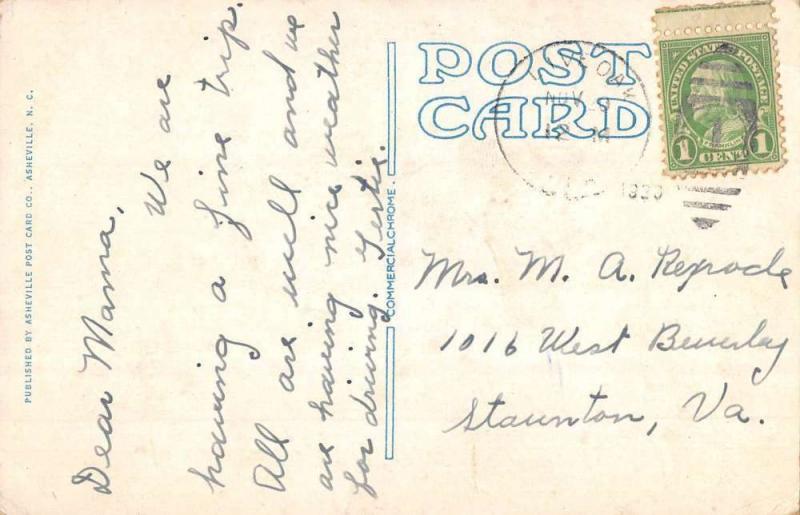 PUBLISHED BY ASHEVILLE POST CARD CO., ASHEVILLE, N. C.
Dear Mama,
We are
having a fine trip.
All are well and we
are having nice weather
for driving. Gertie.
COMMERCIALCHROME.
POST
CARD
LIVE OAK
NOV 9
12 M
1930
UNITED STATES POSTAGE
FRANKLIN
1 CENT 1
Mrs. M. A. Rexrode
1016 West Beverley
Staunton, Va.